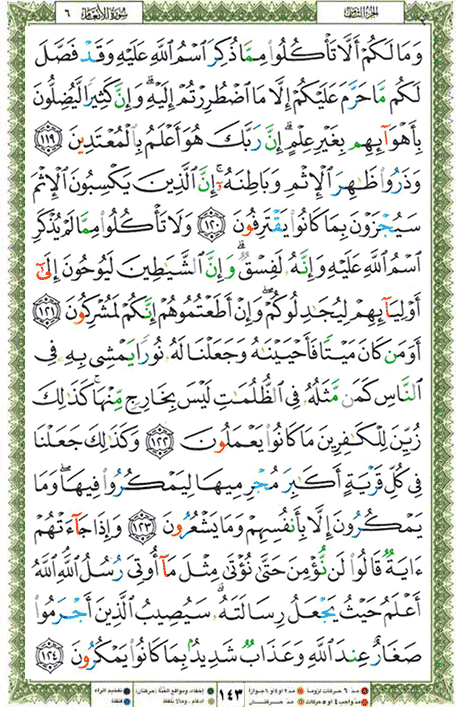 سورة الأنعام ٦ الجزء الثامن
وَمَا لَكُمْ أَلَّا تَأْكُلُوا۟ مِمَّا ذُكِرَ ٱسْمُ ٱللَّهِ عَلَيْهِ وَقَدْ فَصَّلَ
لَكُم مَّا حَرَّمَ عَلَيْكُمْ إِلَّا مَا ٱضْطُرِرْتُمْ إِلَيْهِ ۗ وَإِنَّ كَثِيرًا لَّيُضِلُّونَ
بِأَهْوَآئِهِم بِغَيْرِ عِلْمٍ ۗ إِنَّ رَبَّكَ هُوَ أَعْلَمُ بِٱلْمُعْتَدِينَ ١١٩
وَذَرُوا۟ ظَـٰهِرَ ٱلْإِثْمِ وَبَاطِنَهُۥٓ ۚ إِنَّ ٱلَّذِينَ يَكْسِبُونَ ٱلْإِثْمَ
سَيُجْزَوْنَ بِمَا كَانُوا۟ يَقْتَرِفُونَ ١٢٠ وَلَا تَأْكُلُوا۟ مِمَّا لَمْ يُذْكَرِ
ٱسْمُ ٱللَّهِ عَلَيْهِ وَإِنَّهُۥ لَفِسْقٌ ۗ وَإِنَّ ٱلشَّيَـٰطِينَ لَيُوحُونَ إِلَىٰٓ
أَوْلِيَآئِهِمْ لِيُجَـٰدِلُوكُمْ ۖ وَإِنْ أَطَعْتُمُوهُمْ إِنَّكُمْ لَمُشْرِكُونَ ١٢١
أَوَمَن كَانَ مَيْتًا فَأَحْيَيْنَـٰهُ وَجَعَلْنَا لَهُۥ نُورًا يَمْشِى بِهِۦ فِى
ٱلنَّاسِ كَمَن مَّثَلُهُۥ فِى ٱلظُّلُمَـٰتِ لَيْسَ بِخَارِجٍ مِّنْهَا ۚ كَذَٰلِكَ
زُيِّنَ لِلْكَـٰفِرِينَ مَا كَانُوا۟ يَعْمَلُونَ ١٢٢ وَكَذَٰلِكَ جَعَلْنَا
فِى كُلِّ قَرْيَةٍ أَكَـٰبِرَ مُجْرِمِيهَا لِيَمْكُرُوا۟ فِيهَا ۖ وَمَا
يَمْكُرُونَ إِلَّا بِأَنفُسِهِمْ وَمَا يَشْعُرُونَ ١٢٣ وَإِذَا جَآءَتْهُمْ
ءَايَةٌ قَالُوا۟ لَن نُّؤْمِنَ حَتَّىٰ نُؤْتَىٰ مِثْلَ مَآ أُوتِىَ رُسُلُ ٱللَّهِ ۘ ٱللَّهُ
أَعْلَمُ حَيْثُ يَجْعَلُ رِسَالَتَهُۥ ۗ سَيُصِيبُ ٱلَّذِينَ أَجْرَمُوا۟
صَغَارٌ عِندَ ٱللَّهِ وَعَذَابٌ شَدِيدٌۢ بِمَا كَانُوا۟ يَمْكُرُونَ ١٢٤
١٤٣
مد ٦ حركات لزوماً مد ٢ أو ٤ أو ٦ جوازاً
مد واجب ٤ أو ٥ حركات مد حركتان
إخفاء، ومواقع الغنة (حركتان) تفخيم الراء
إدغام، وما لا يلفظ قلقلة